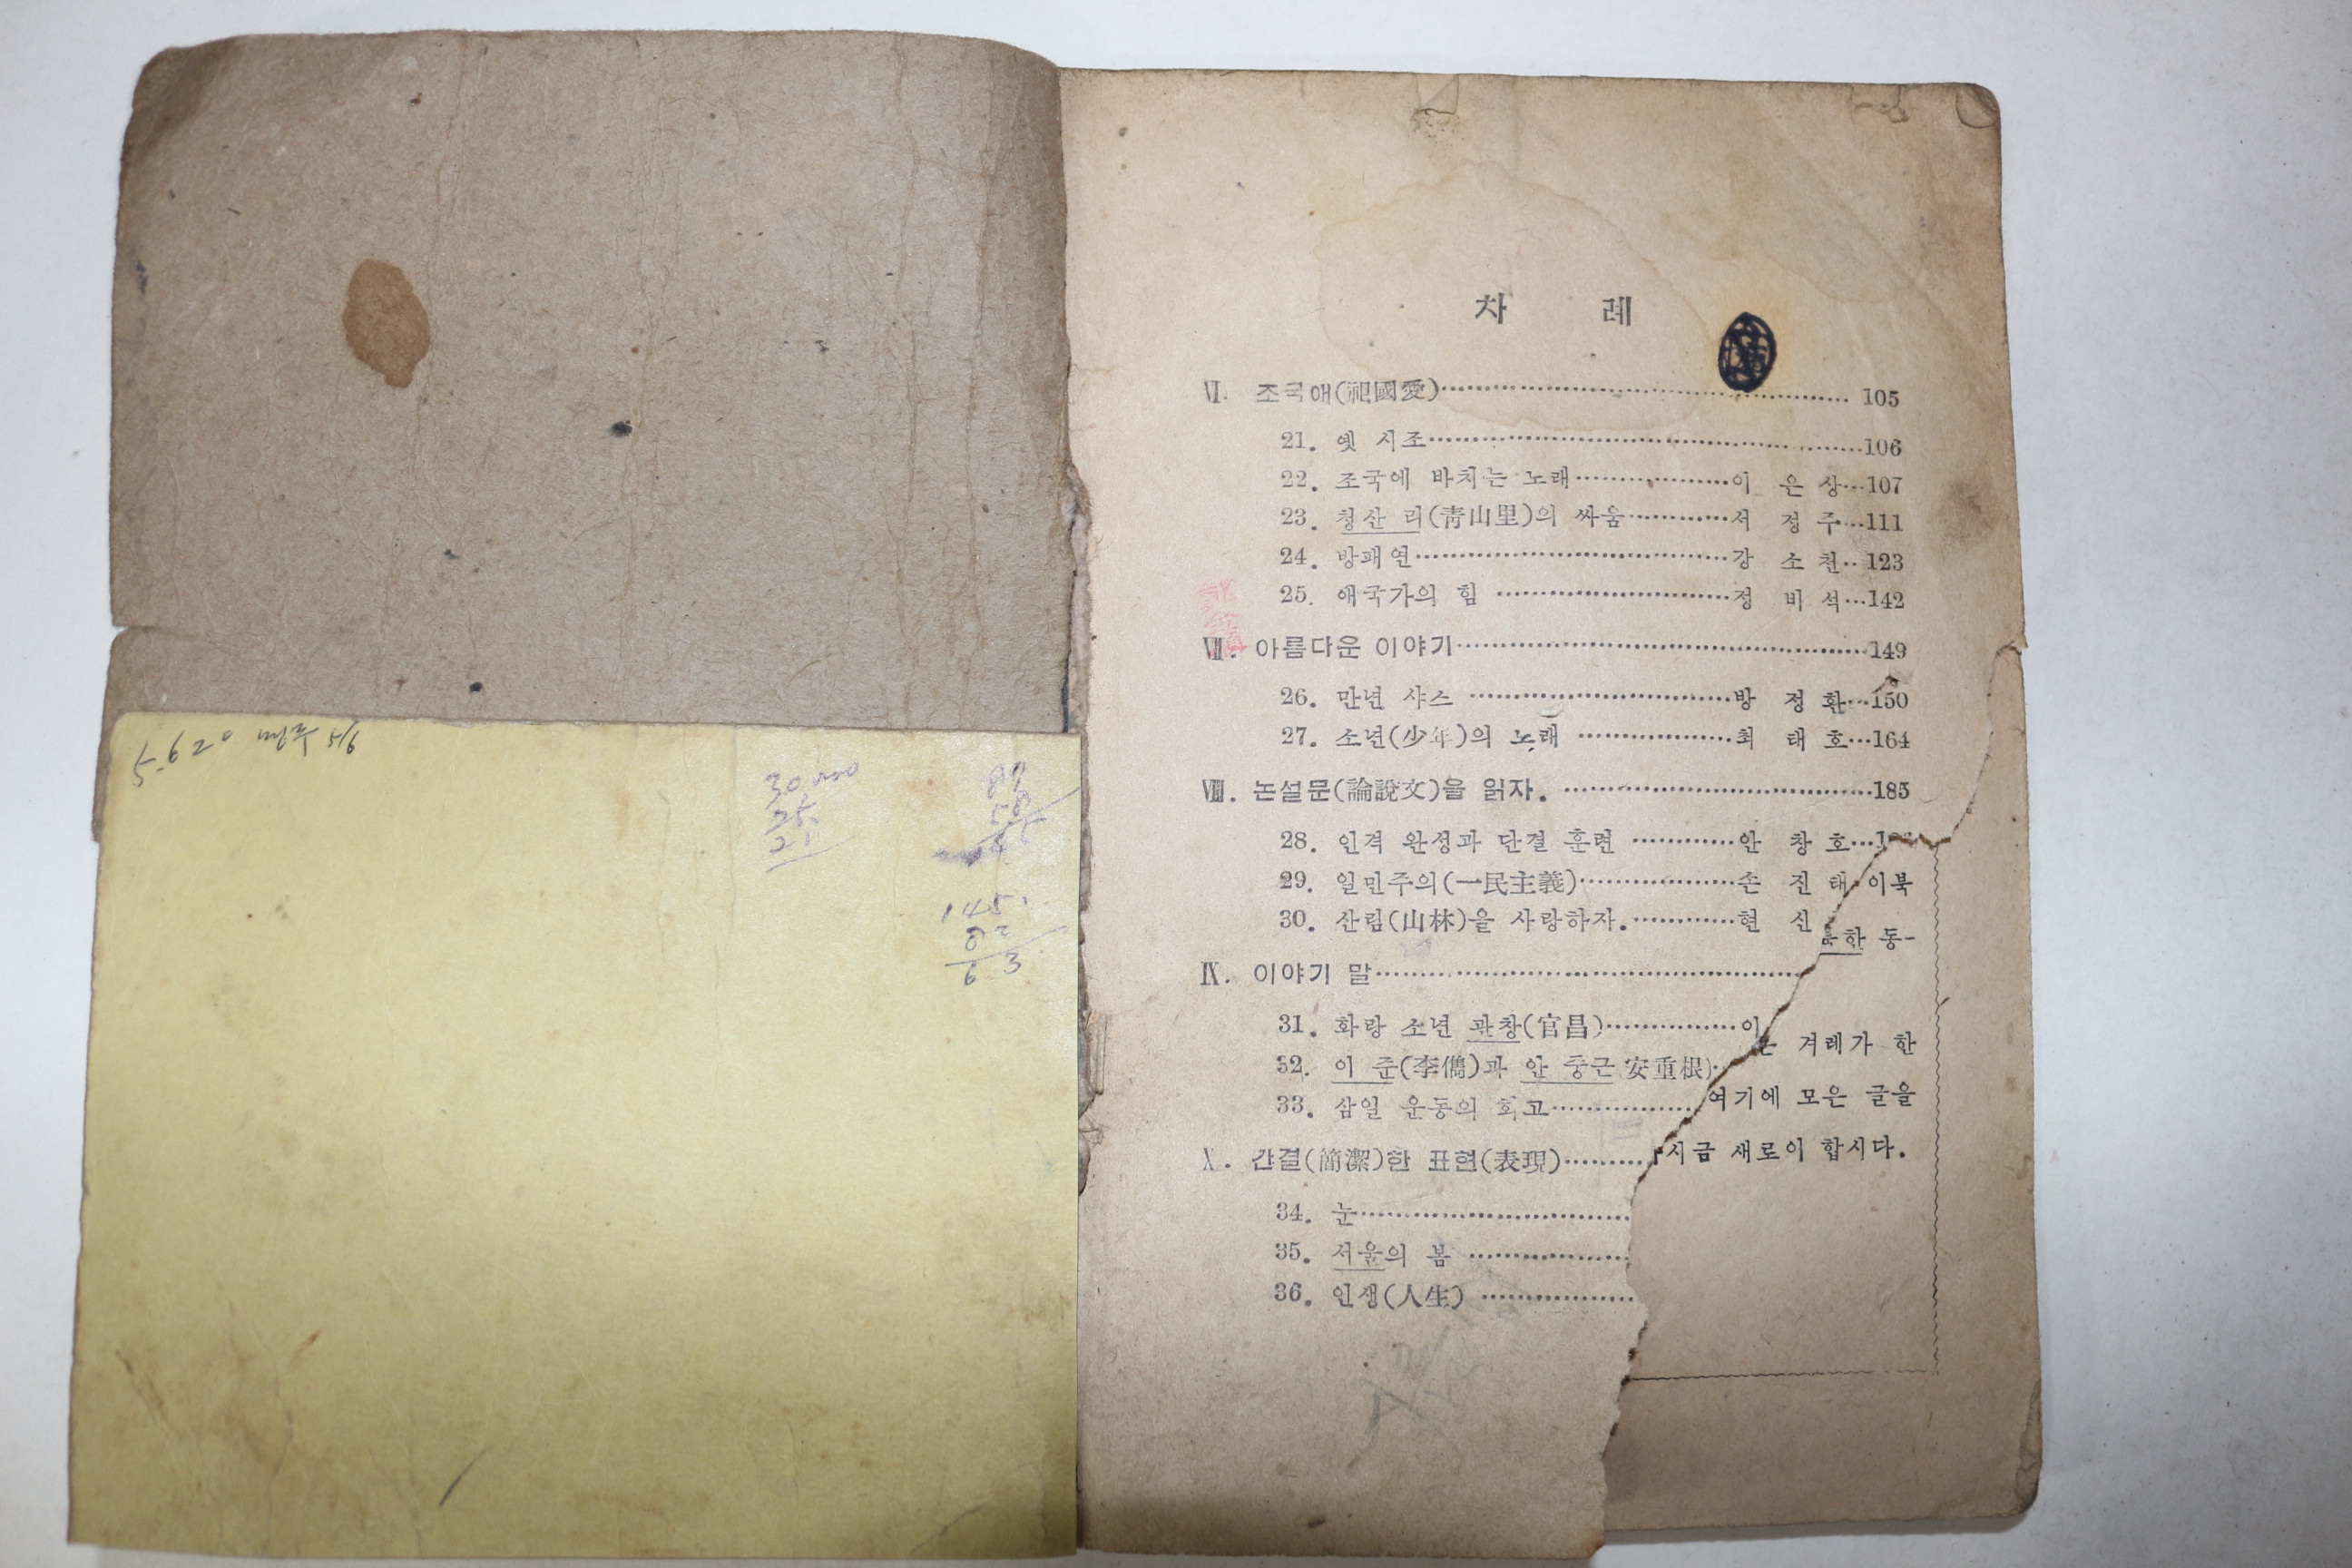 5-620
30,000
25
21
145
82
63
차 례
Ⅵ. 조국애(祀國愛)……………………………… 105
21. 옛 시조………………………………106
22. 조국에 바치는 노래………………이 은 상…107
23. 청산 리(靑山里)의 싸움…………서 정 주…111
24. 방패연………………………………강 소 천…123
25. 애국가의 힘 ………………………정 비 석…142
Ⅶ. 아름다운 이야기………………………………149
26. 만년 샤스 …………………………방 정 환…150
27. 소년(少年)의 노래 ………………최 태 호…164
Ⅷ. 논설문(論說文)을 읽자. ………………………185
28. 인격 완성과 단결 훈련 …………안 창 호…
29. 일민주의(一民主義)………………손 진 태 이북
30. 산림(山林)을 사랑하자.…………현 신
한 동-
Ⅸ. 이야기 말………………………………
31. 화랑 소년 관창(官昌)……………이
겨레가 한
32. 이 준(李儁)과 안 중근 安重根)…
33. 삼일 운동의 회고………………
여기에 모은 글을
Ⅹ. 간결(簡潔)한 표현(表現)………
시금 새로이 합시다.
34. 눈…………………………
35. 서울의 봄 ………………
36. 인생(人生) ………………